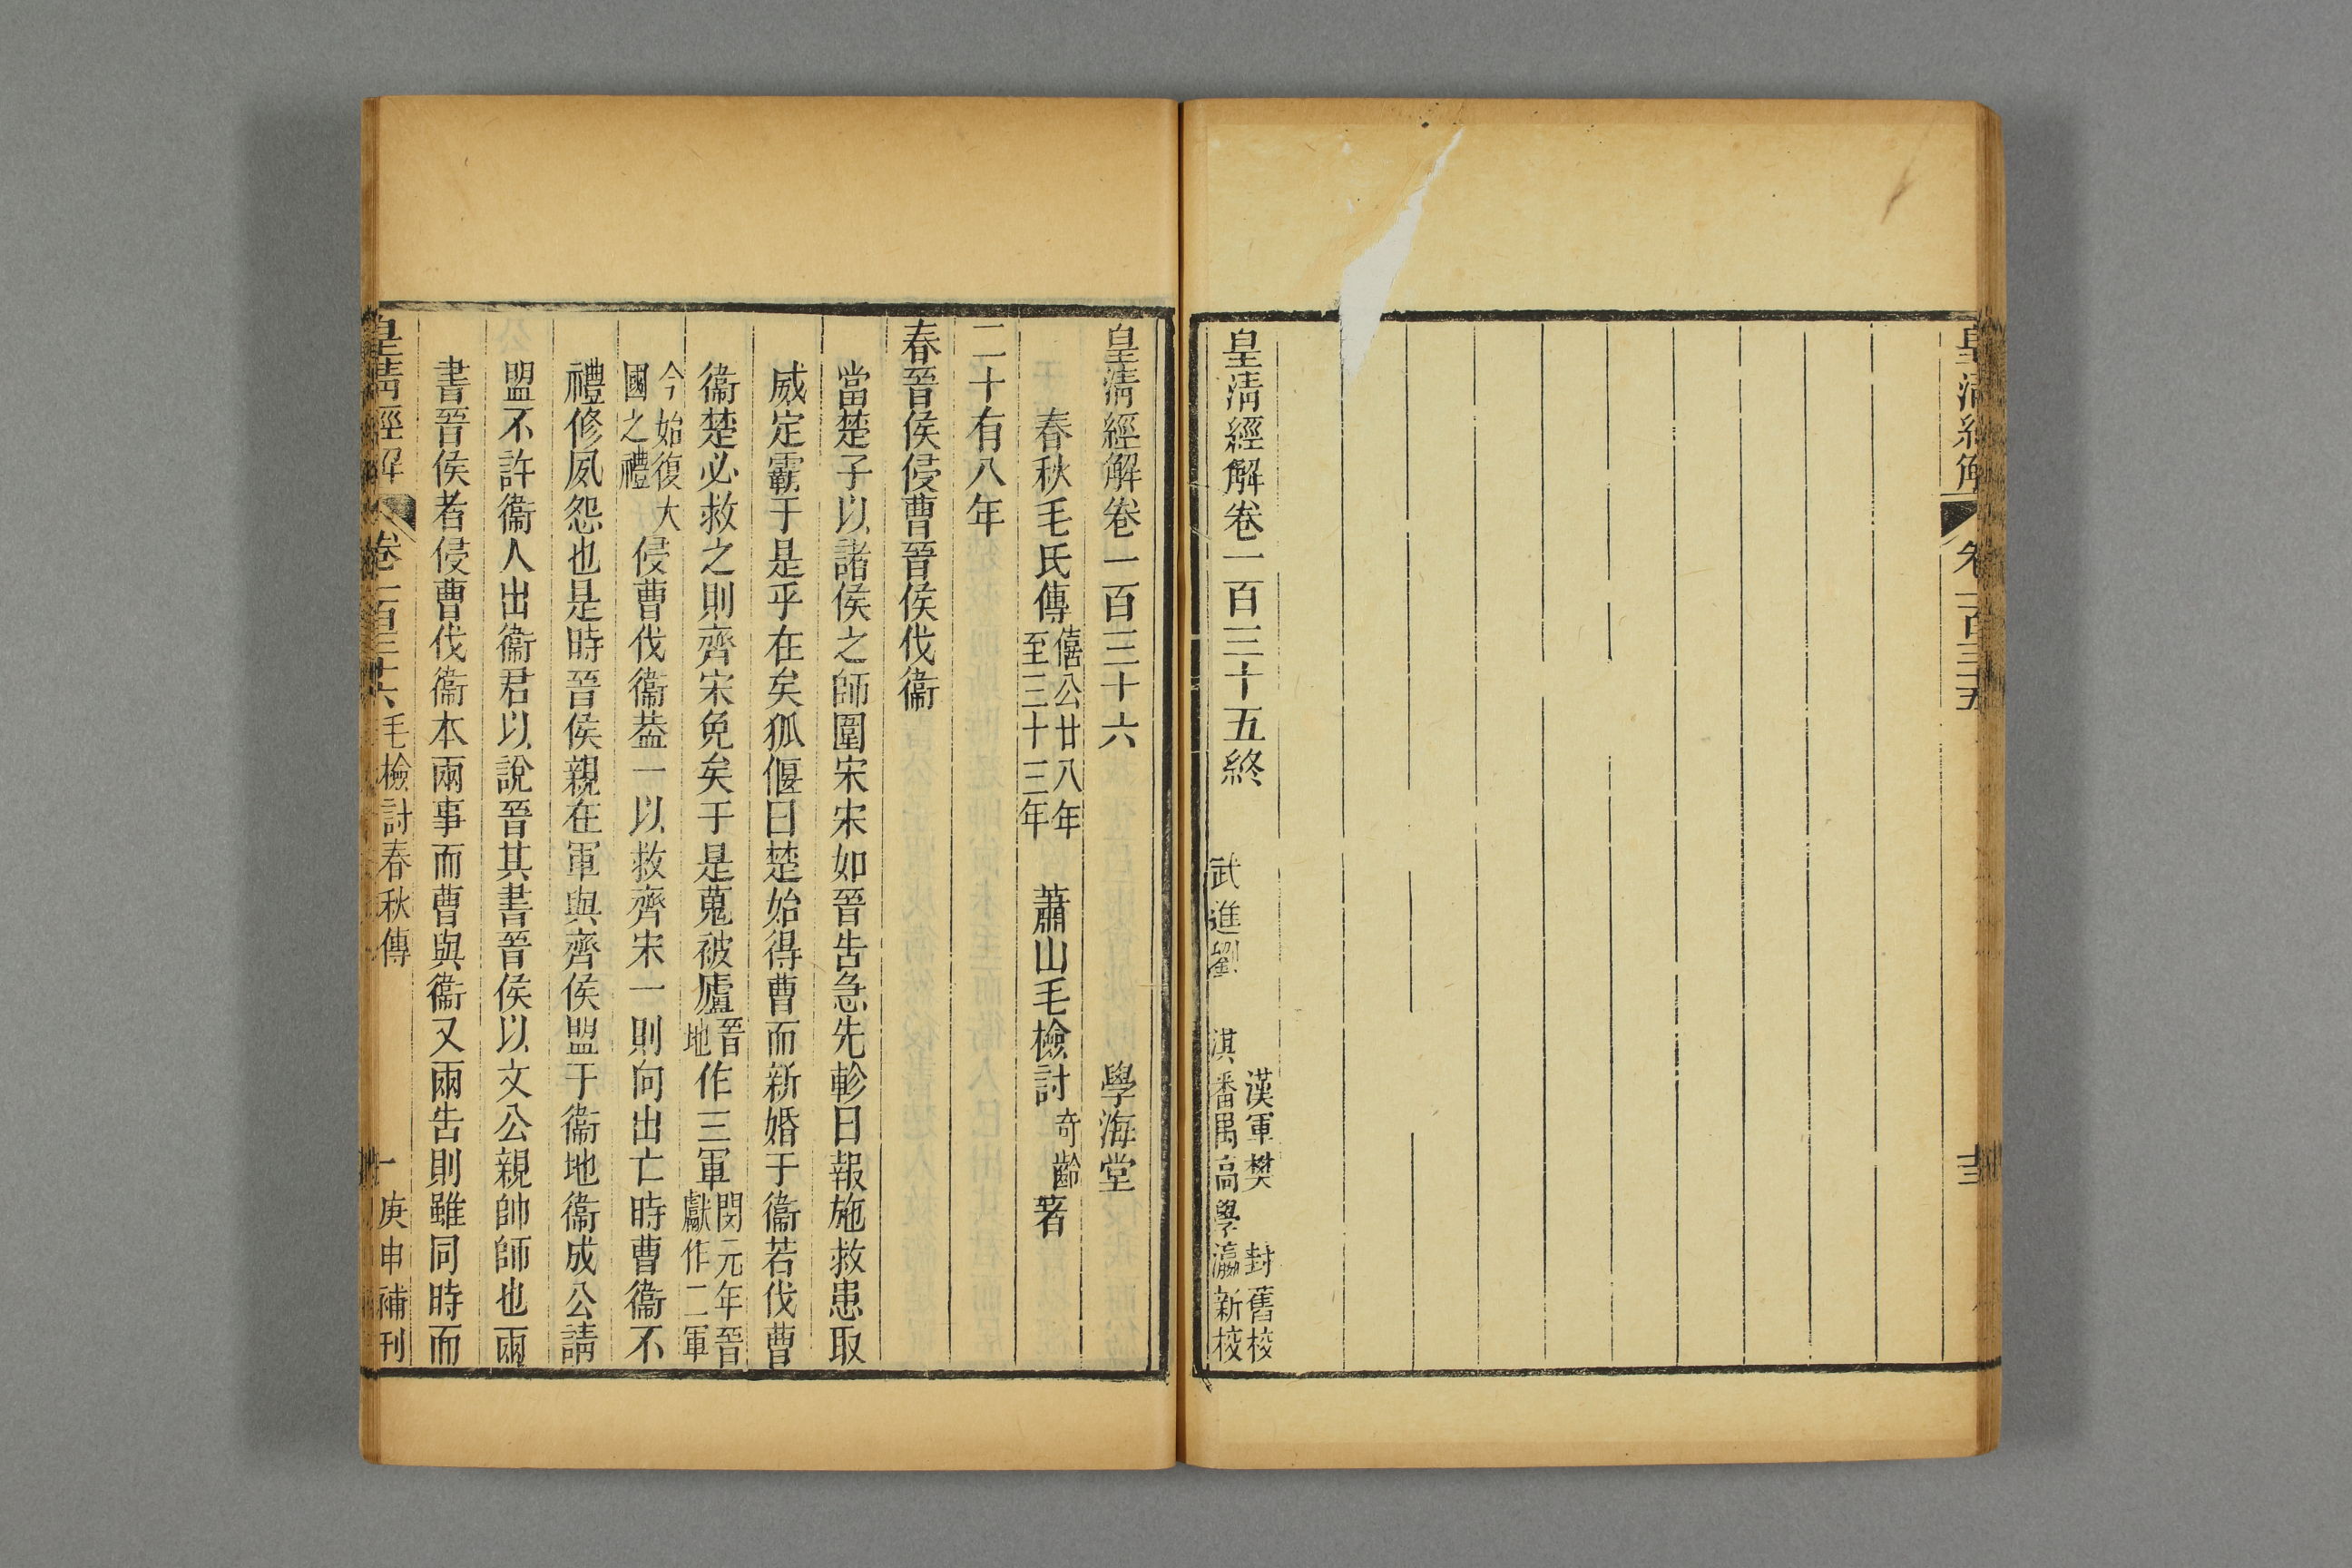 皇清經解
卷一百三十五
十三
皇清經解卷一百三十五終
漢軍樊封舊校
武進劉淇番禺高學瀛新校
皇清經解卷一百三十六 學海堂
春秋毛氏傳 僖公廿八年至三十三年 蕭山毛檢討奇齡著
二十有八年
春晉侯侵曹晉侯伐衞
當楚子以諸侯之師圍宋宋如晉告急先軫曰報施救患取
威定霸于是乎在矣狐偃曰楚始得曹而新婚于衞若伐曹
衞楚必救之則齊宋免矣于是蒐被廬晉地作三軍閔元年晉獻作二軍
今始復大國之禮侵曹伐衞葢一以救齊宋一則向出亡時曹衞不
禮修夙怨也是時晉侯親在軍與齊侯盟于衞地衞成公請
盟不許衞人出衞君以說晉其書晉侯以文公親帥師也兩
書晉侯者侵曹伐衞本兩事而曹與衞又兩告則雖同時而
皇清經解 卷一百三十六 毛檢討春秋傳 一 庚申補刊